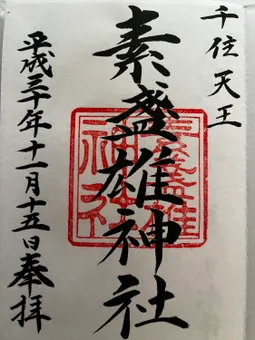 千住天王
素盞雄神社
平成三十年十一月十五日奉拝
素盞雄神社